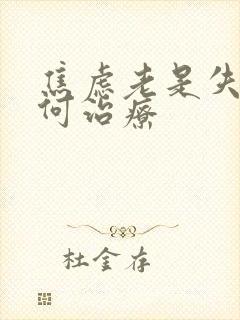 焦虑老是失
何治疗
杜金存